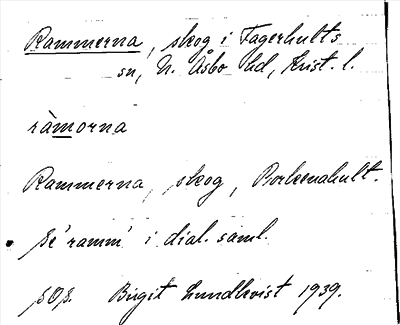 Rammerna, skog i Fagerhults
sn, N. Åsbo hd, Krist. l.
ràmorna
Rammerna, skog, Borkenahult.
Se 'ramm' i dial. saml.
SOS. Birgit Lundkvist 1939.